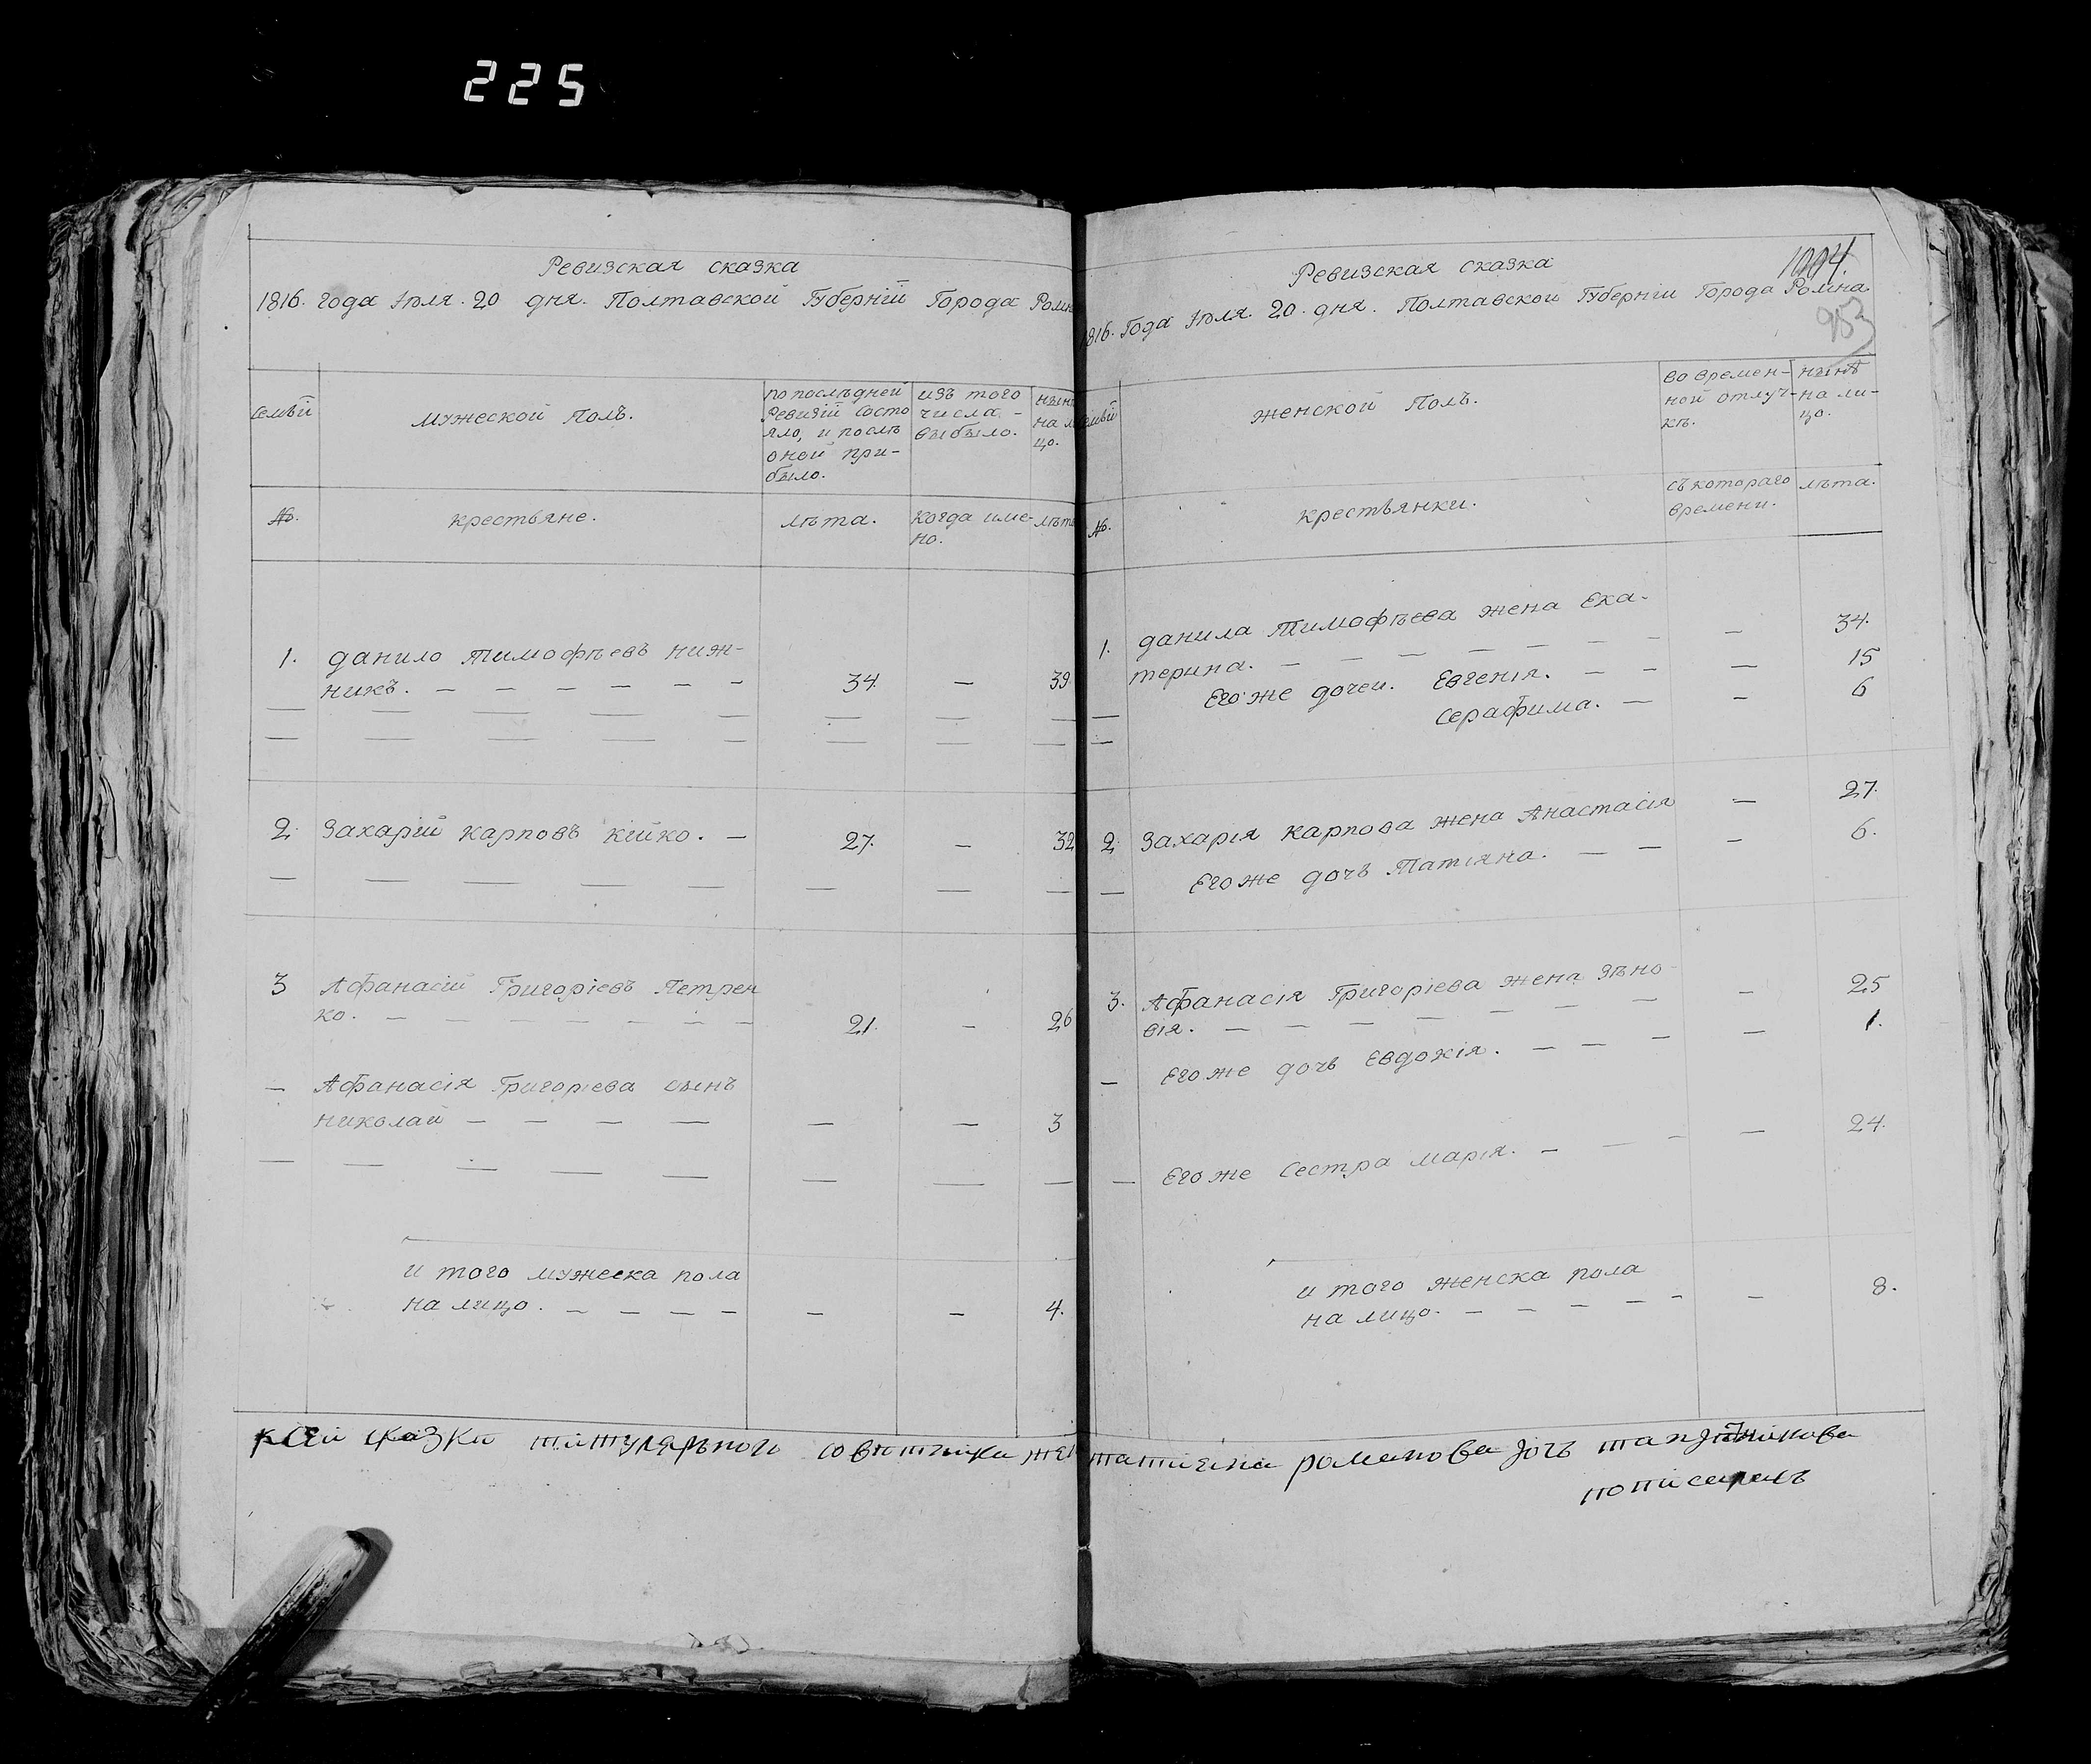 225
Ревизская сказка
1816. Года Іюля. 20 дня. Полтавской Губерніи Города
Семьи
мужеской Полъ.
по последней
Ревизіи состо
яло, и после
оной при-
было.
изъ того
числа -
выбыло.
№.
крестьяне.
лета.
когда име-
но.
1. данило Тимофеевъ ниж-
никъ. — — — — — — 34. — 39.
2. Захарій карповъ кійко. — 27. — 32
3 Афанасій Григоріевъ Петрен
ко. — — — — — — — 21. — 26
— Афанасія Григоріева сынъ
николай — — — — — — 3
и того мужеска пола
на лицо. — — — — — — 4.
1004.
953
Ревизская сказка
1816. Года Іюля. 20. дня. Полтавской Губерніи Города Ромна.
женской Полъ.
во времен-
ной отлуч-
кѣ.
нынѣ
на ли-
цо.
№.
крестьянки.
съ котораго
времени.
лѣта.
1. данила Тимофѣева жена Ека-
терина. — — — — — — — 34.
Его же дочеи. Евгенія. — — — 15
Серафима. — — 6
2. Захарія карпова жена Анастасія — 27.
Его же дочь Татіяна. — — — 6.
3. Афанасія Григоріева жена Зѣно-
вія. — — — — — — — — 25
— Его же дочь Евдокія. — — — — 1.
— Его же Сестра марія. — — — — 24.
и того женска пола
на лицо. — — — — — — 8.
к сей сказки титулярьного советника
романова дочь